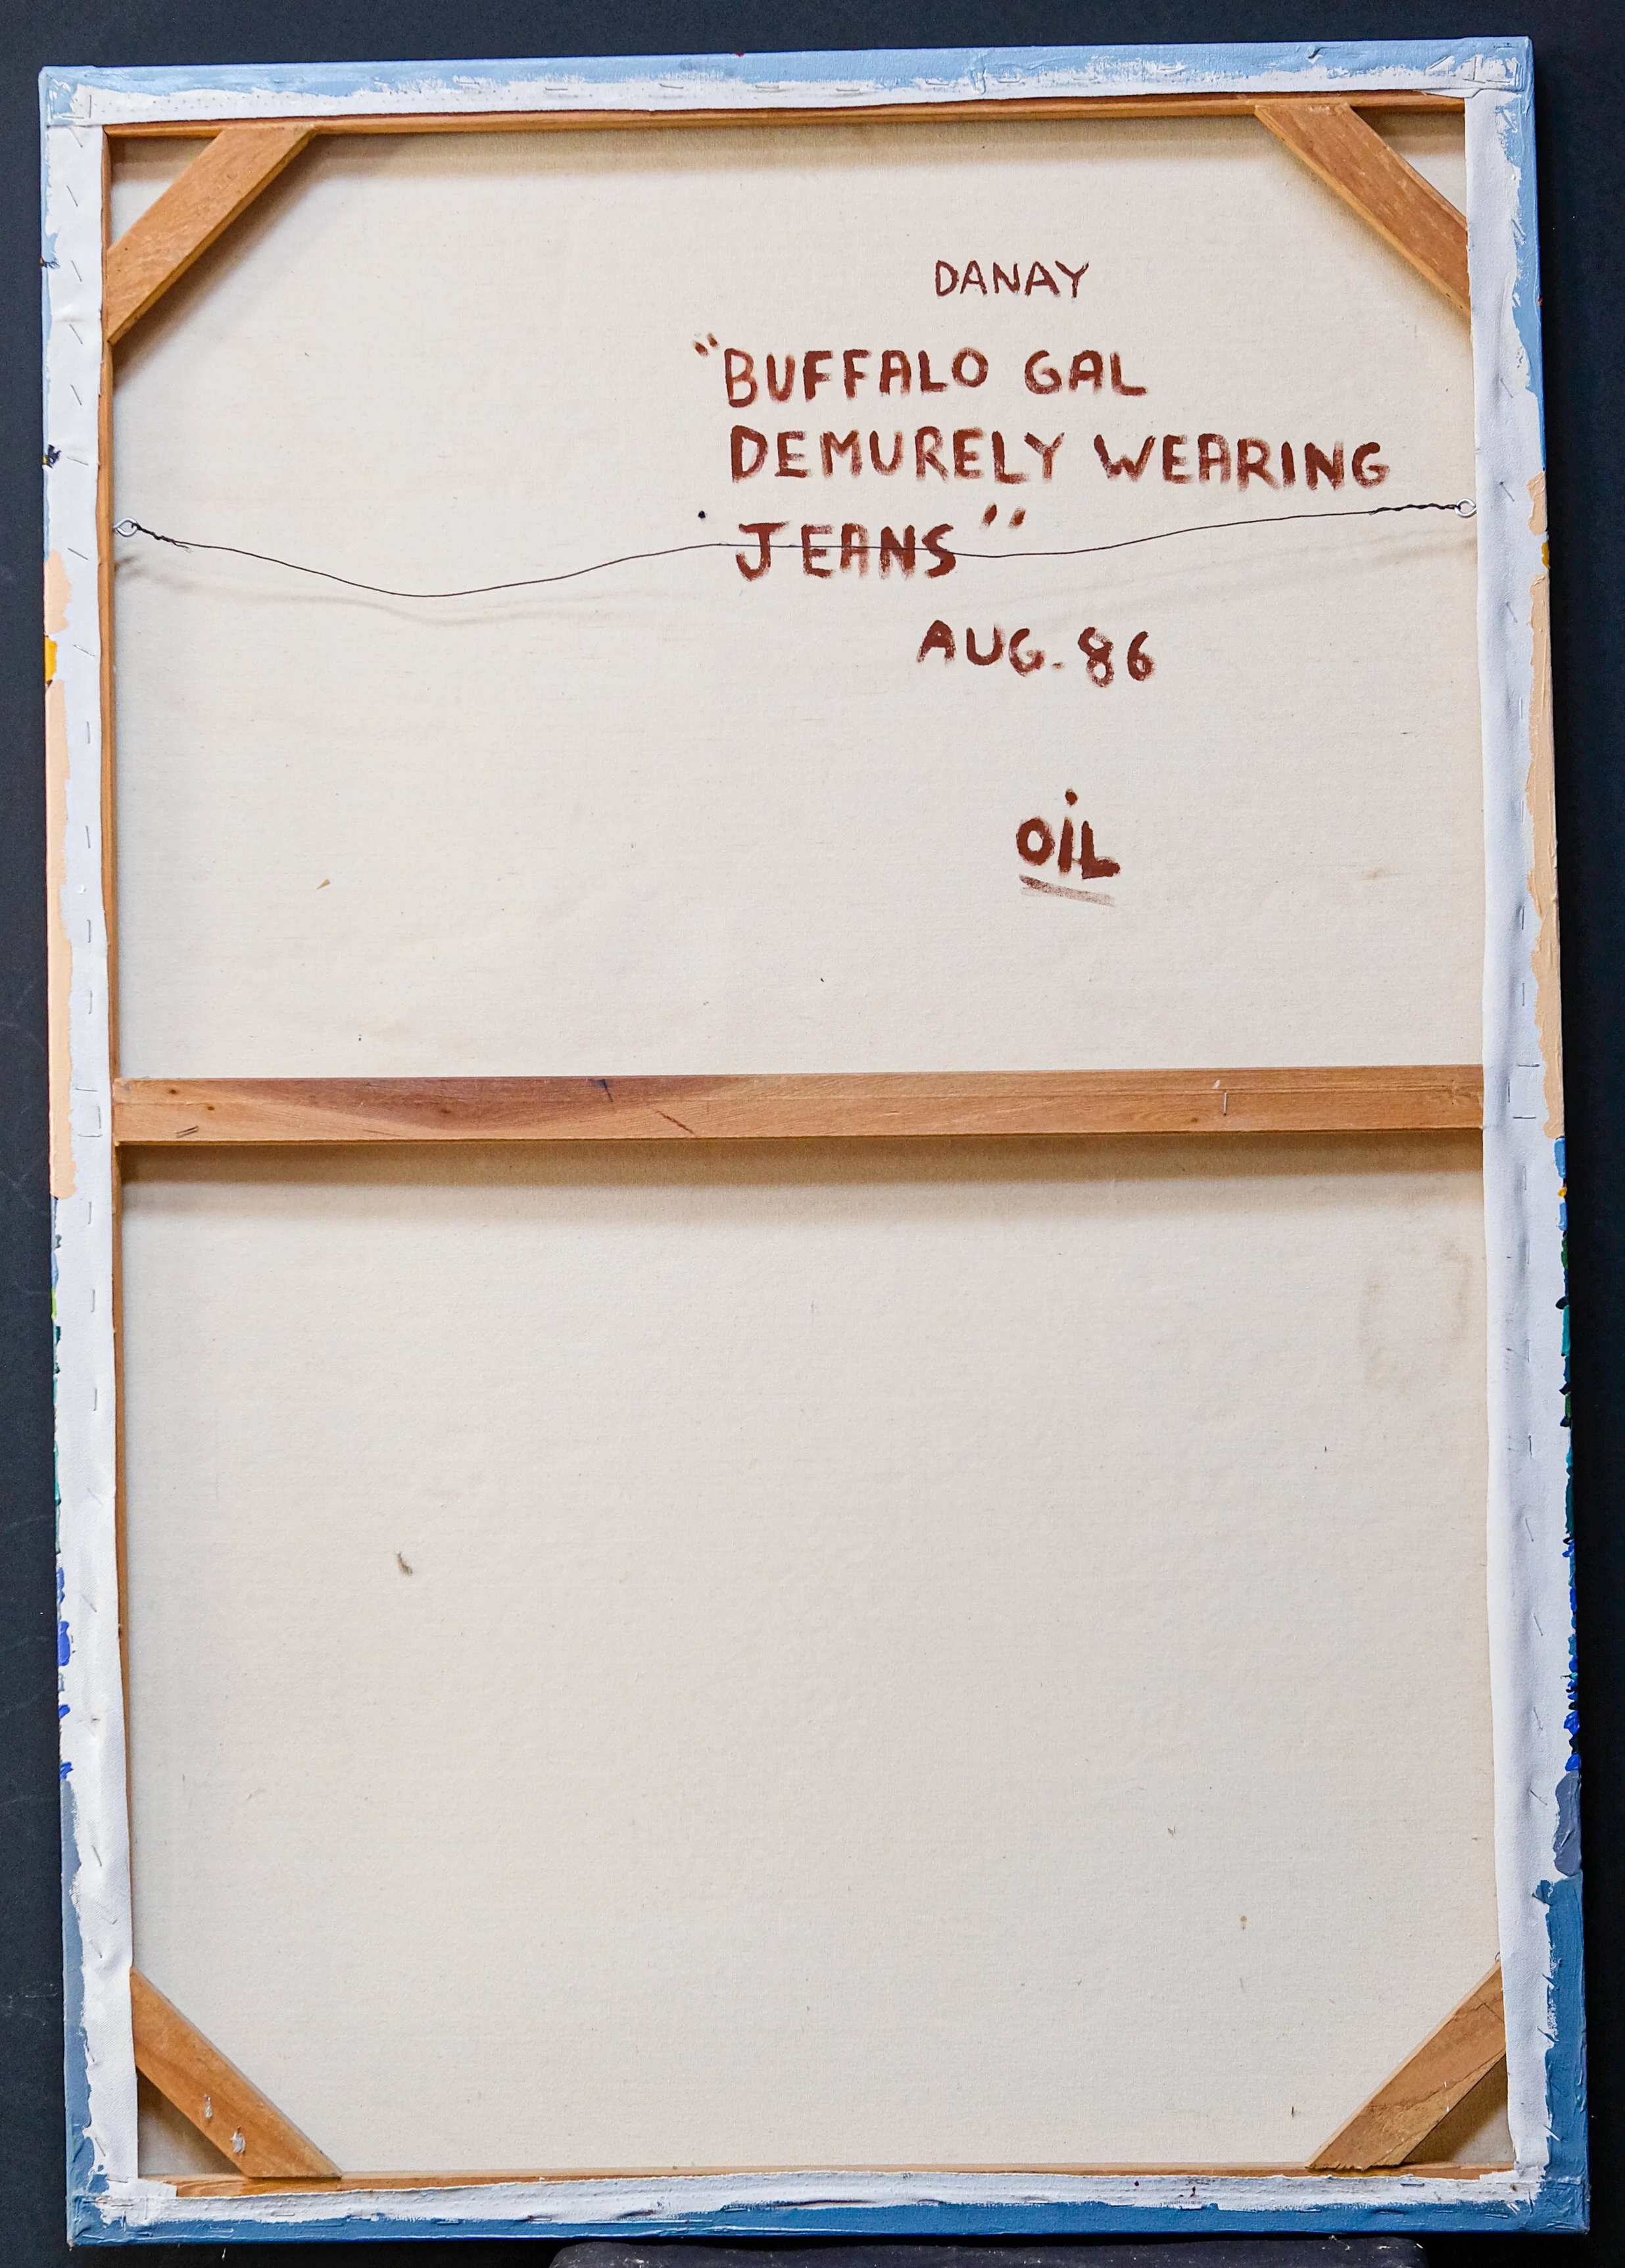 DANAY
"BUFFALO GAL
DEMURELY WEARING
JEANS"
AUG. 86
OiL